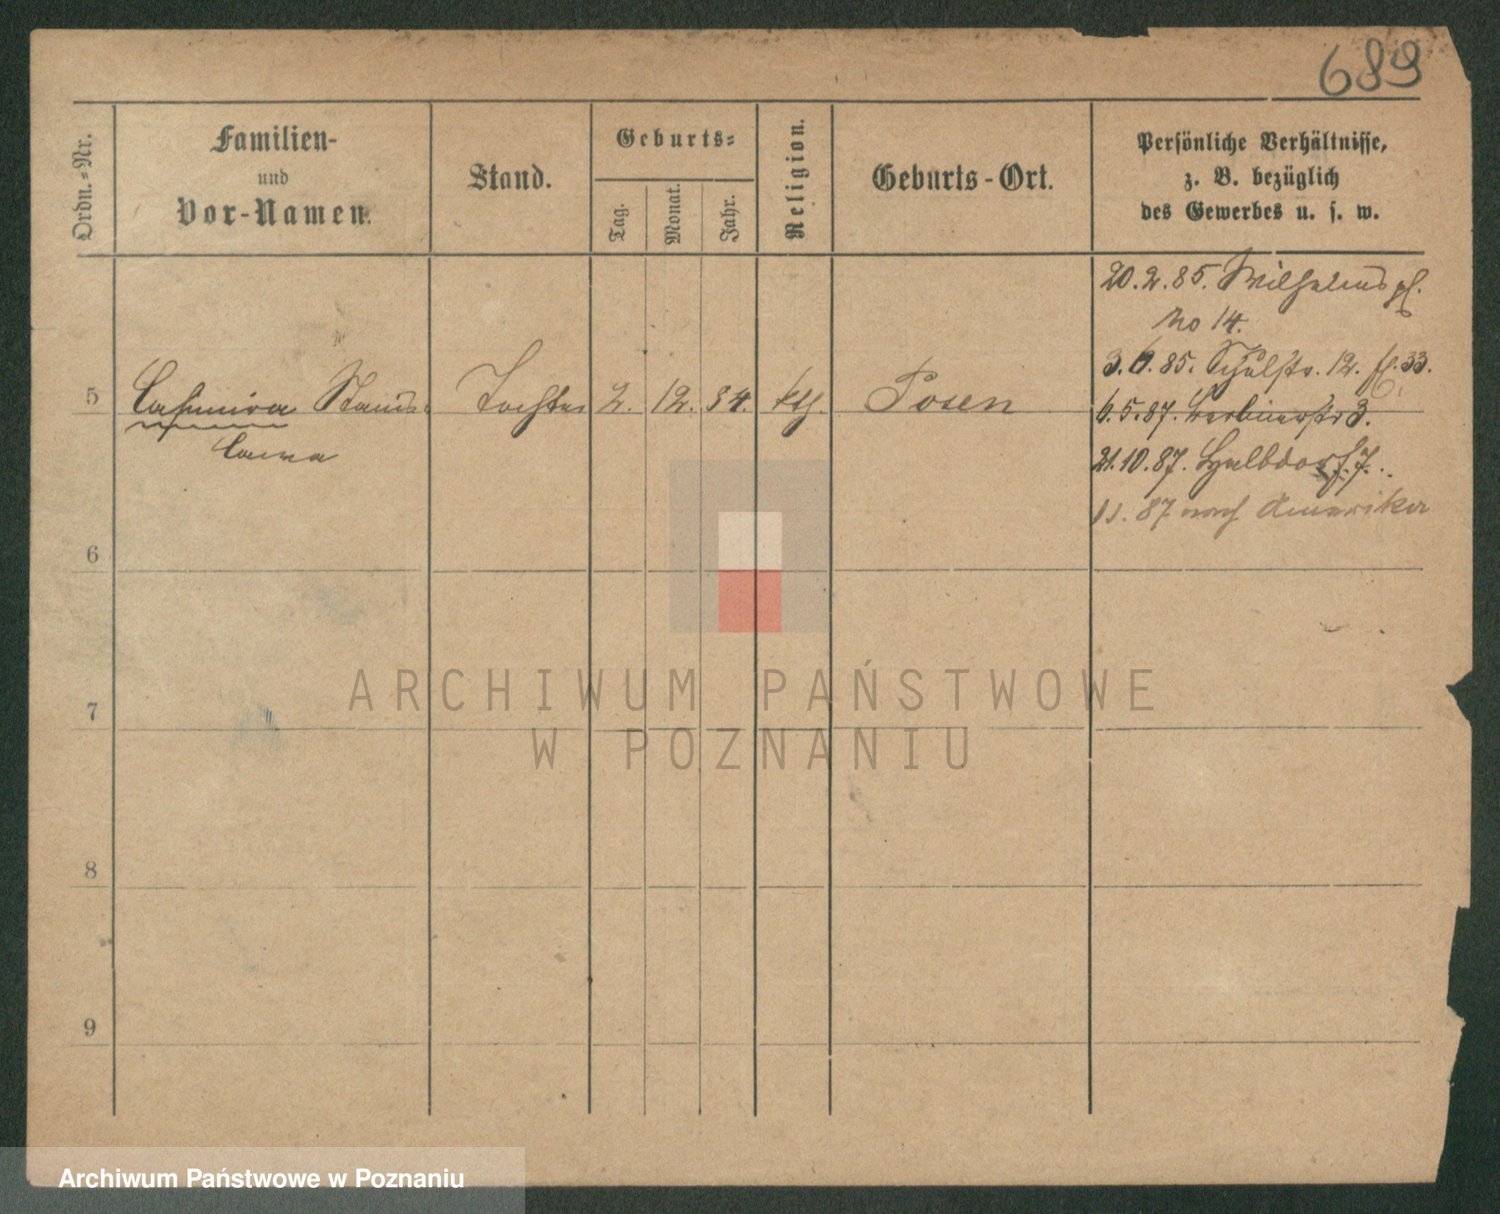 689
Ordn.-Nr.
Familien-
und
Vor-Namen.
Stand.
Geburts-
Tag.
Monat.
Jahr.
Religion.
Geburts-Ort.
Persönliche Verhältnisse,
z. B. bezüglich
des Gewerbes u. s. w.
20.2.85. Wilhelms pl.
No 14.
3.6.85. Schulstr. 12.
5 Casimira Stanis- Tochter 2. 12. 84. kth. Posen
6.5.87. 3.
21.10.87. Halbdorf. 7.
87 nach Amerika
6
7
8
9
ARCHIWUM PAŃSTWOWE
W POZNANIU
Archiwum Państwowe w Poznaniu